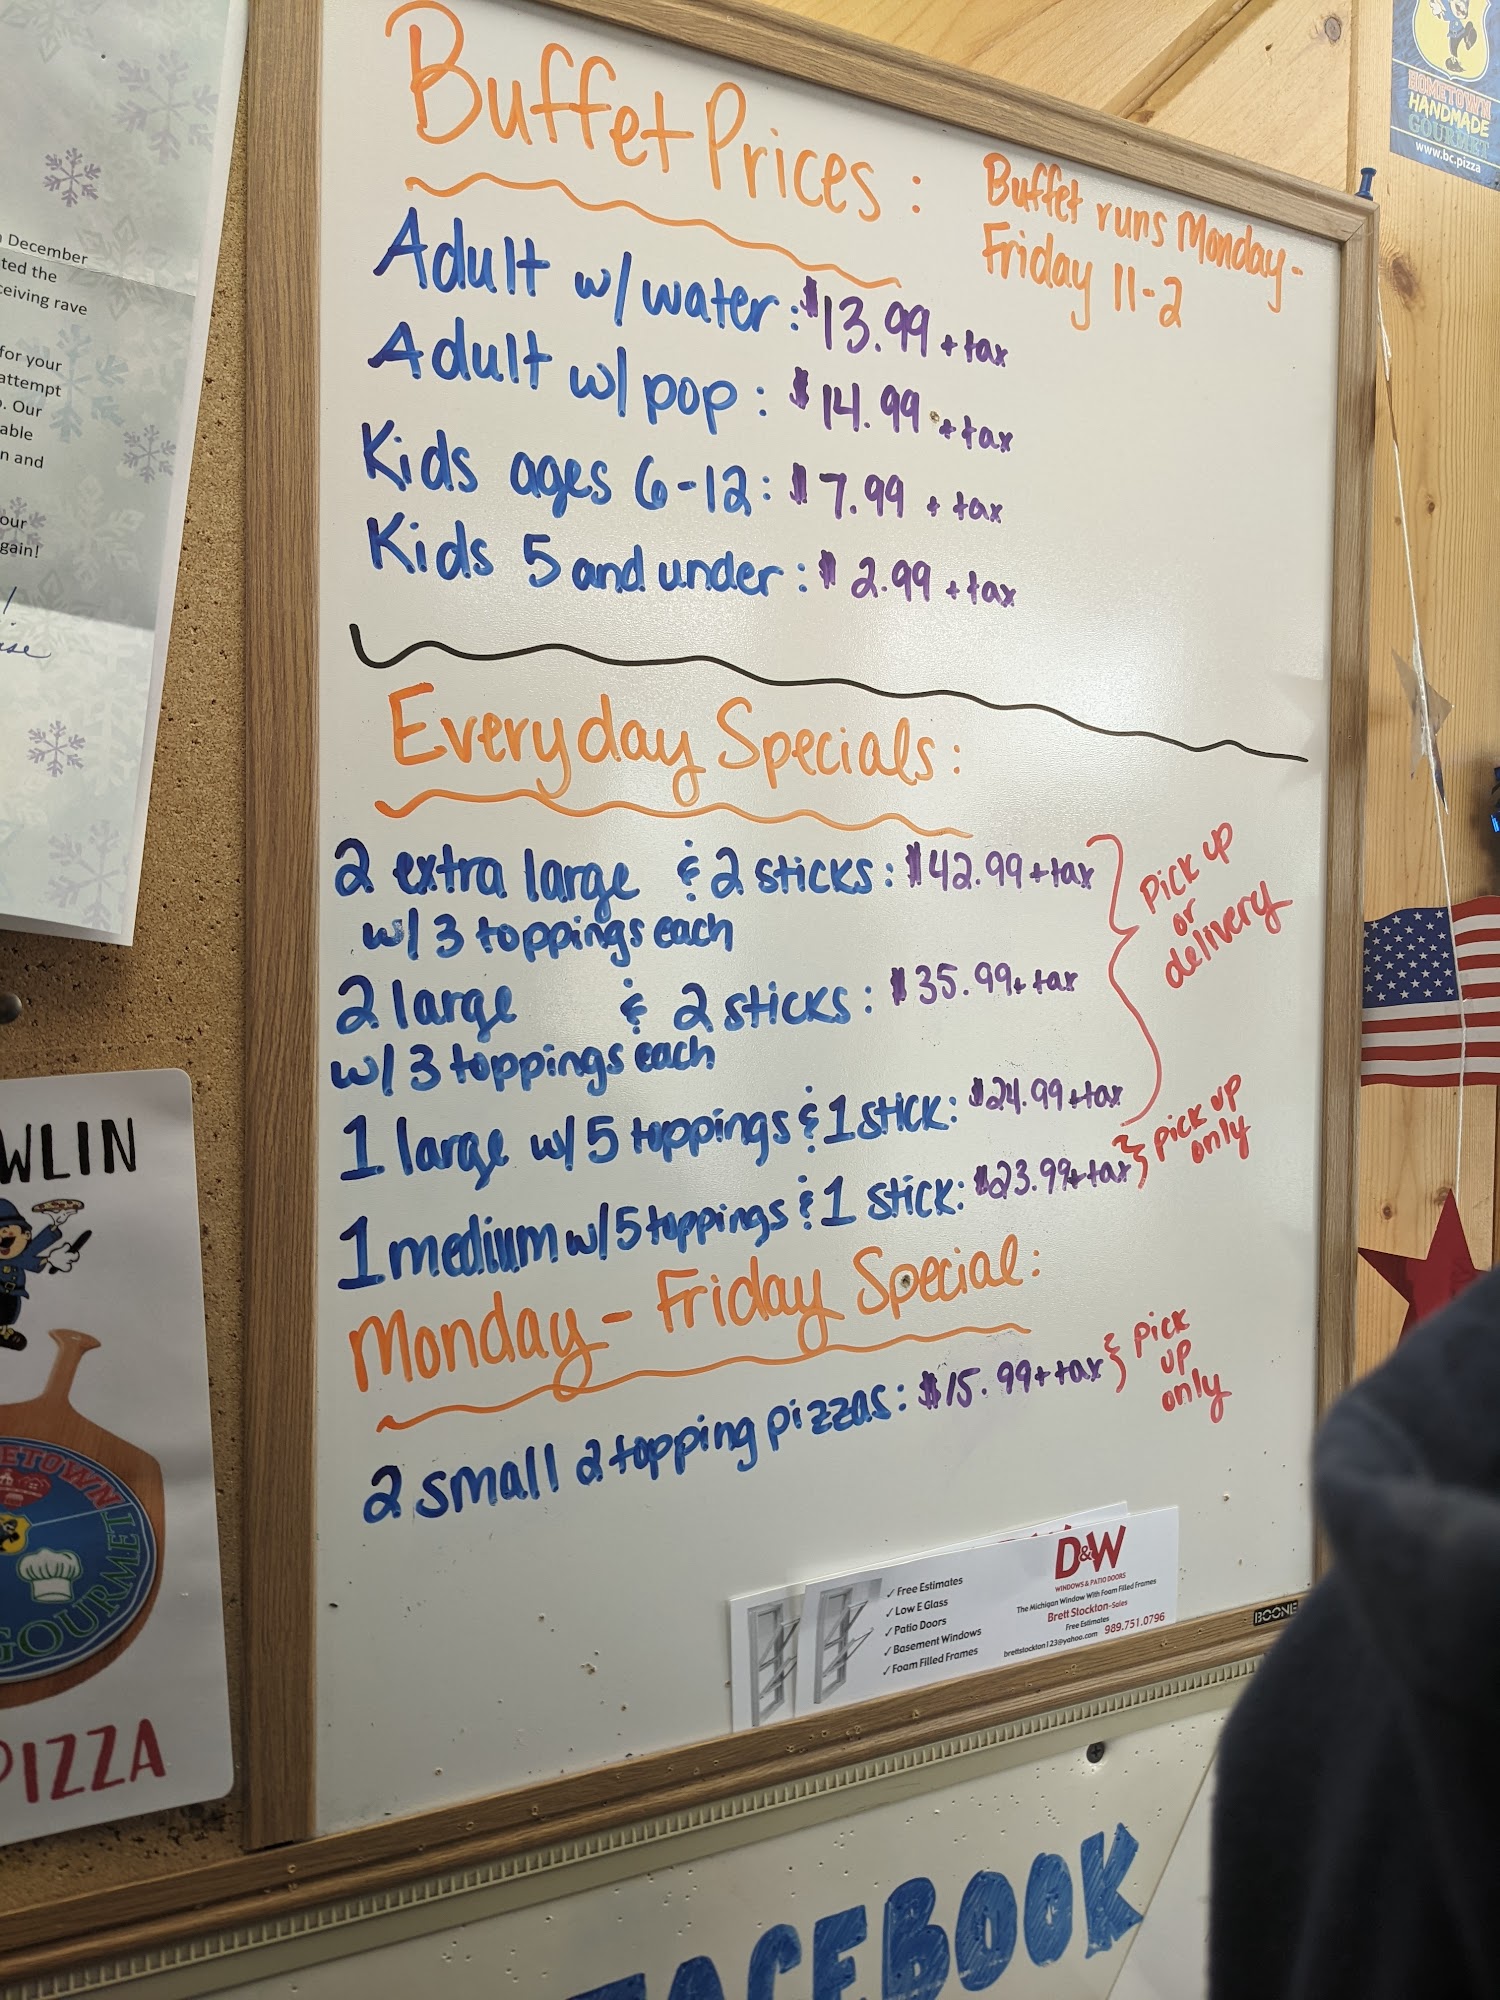 Buffet Prices:
Buffet runs Monday-
Friday 11-2
Adult w/ water: $13.99 + tax
Adult w/ pop: $14.99 + tax
Kids ages 6-12: $7.99 + tax
Kids 5 and under: $2.99 + tax
Everyday Specials:
2 extra large & 2 sticks: $42.99 + tax
w/ 3 toppings each
2 large & 2 sticks: $35.99 + tax
w/ 3 toppings each
1 large w/ 5 toppings & 1 stick: $24.99 + tax
Pick up
or
delivery
1 medium w/ 5 toppings & 1 stick: $23.99 + tax
pick up
only
Monday - Friday Special:
2 small 2 topping pizzas: $15.99 + tax
pick
up
only
✓ Free Estimates
✓ Low E Glass
✓ Patio Doors
✓ Basement Windows
✓ Foam Filled Frames
D&W
WINDOWS & PATIO DOORS
The Michigan Window With Foam Filled Frames
Brett Stockton-Sales
Free Estimates
brettstockton123@yahoo.com 989.751.0796
BOONE
FACEBOOK
HOMETOWN
HANDMADE
GOURMET
www.bc.pizza
December
ted the
ceiving rave
for your
attempt
. Our
able
n and
our
gain!
WLIN
ETOWN
GOURMET
PIZZA